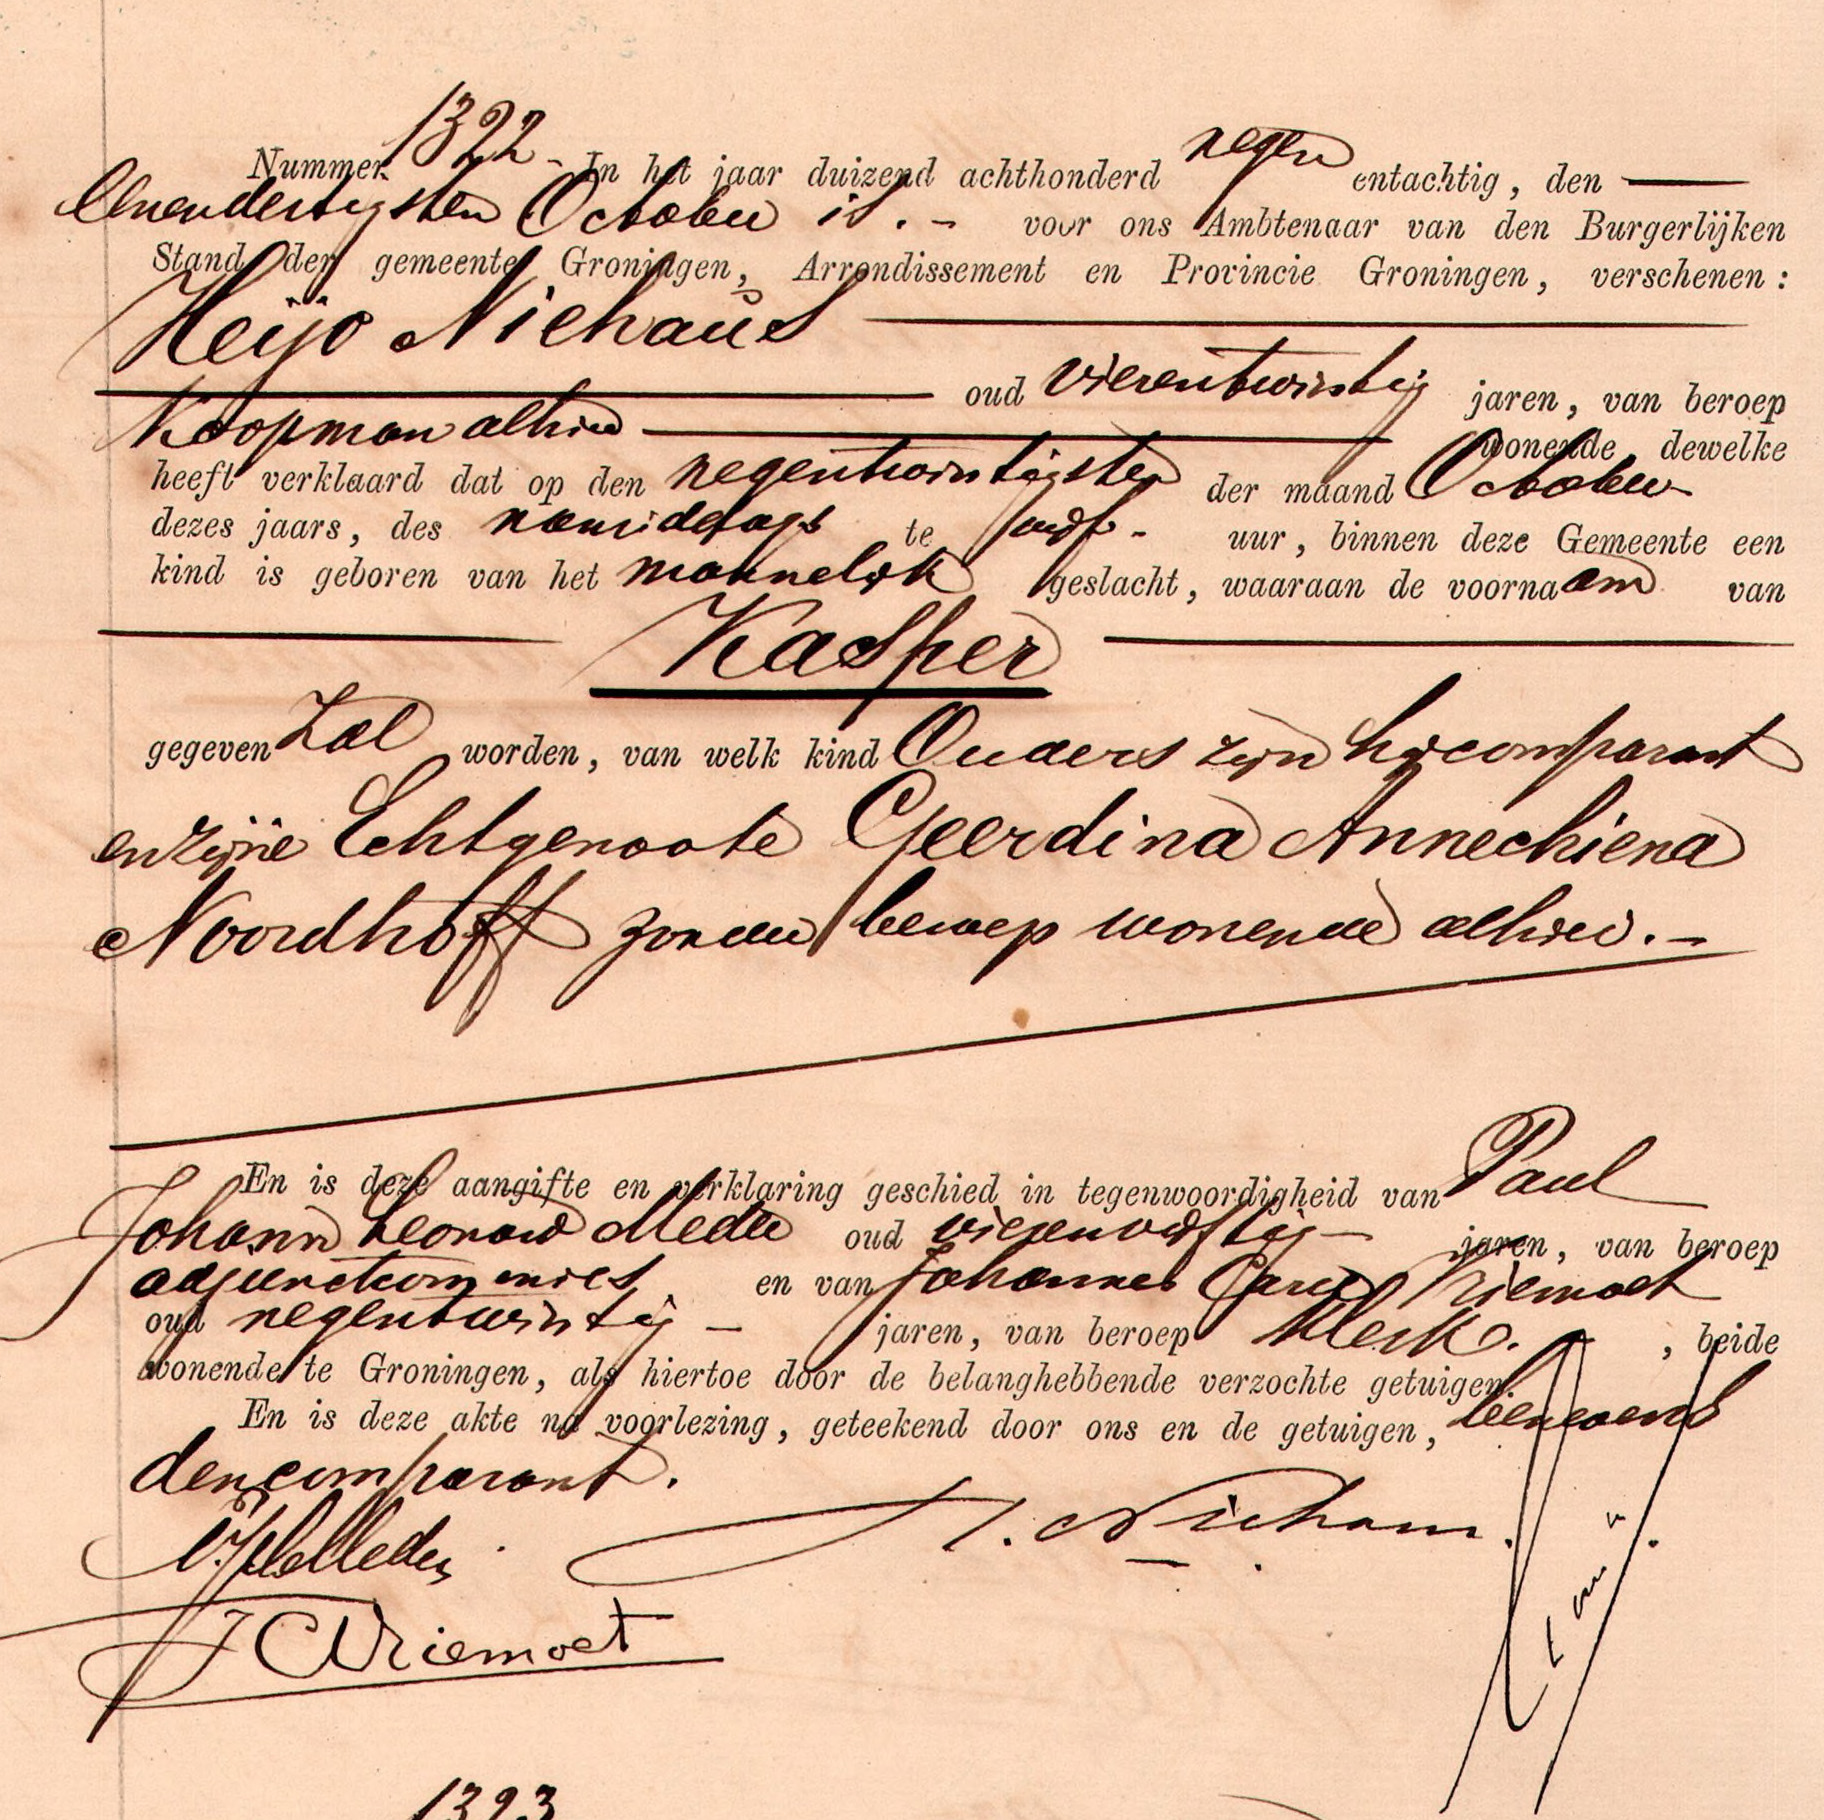 Nummer 1322 - In het jaar duizend achthonderd negen entachtig, den
Eenendertigsten October is. - voor ons Ambtenaar van den Burgerlijken
Stand der gemeente Groningen, Arrondissement en Provincie Groningen, verschenen:
Heijo Niehaus
oud vierentwintig jaren, van beroep
Koopman alhier wonende dewelke
heeft verklaard dat op den negentwintigsten der maand October
dezes jaars, des namiddags te uur, binnen deze Gemeente een
kind is geboren van het mannelijk geslacht, waaraan de voornaam van
Kasper
gegeven zal worden, van welk kind Ouders zijn hij comparant
en zijne Echtgenoote Geerdina Annechiena
Noordhoff zonder beroep wonende alhier. -
En is deze aangifte en verklaring geschied in tegenwoordigheid van Paul
Johann Leonard Meder oud vierenvijftig - jaren, van beroep
adjunctcommies en van Johannes Carel Wriemoet
oud negentwintig - jaren, van beroep Klerk. , beide
wonende te Groningen, als hiertoe door de belanghebbende verzochte getuigen.
En is deze akte na voorlezing, geteekend door ons en de getuigen, benevens
den comparant.
PJLMeder H. Niehaus.
JCWriemoet
1323